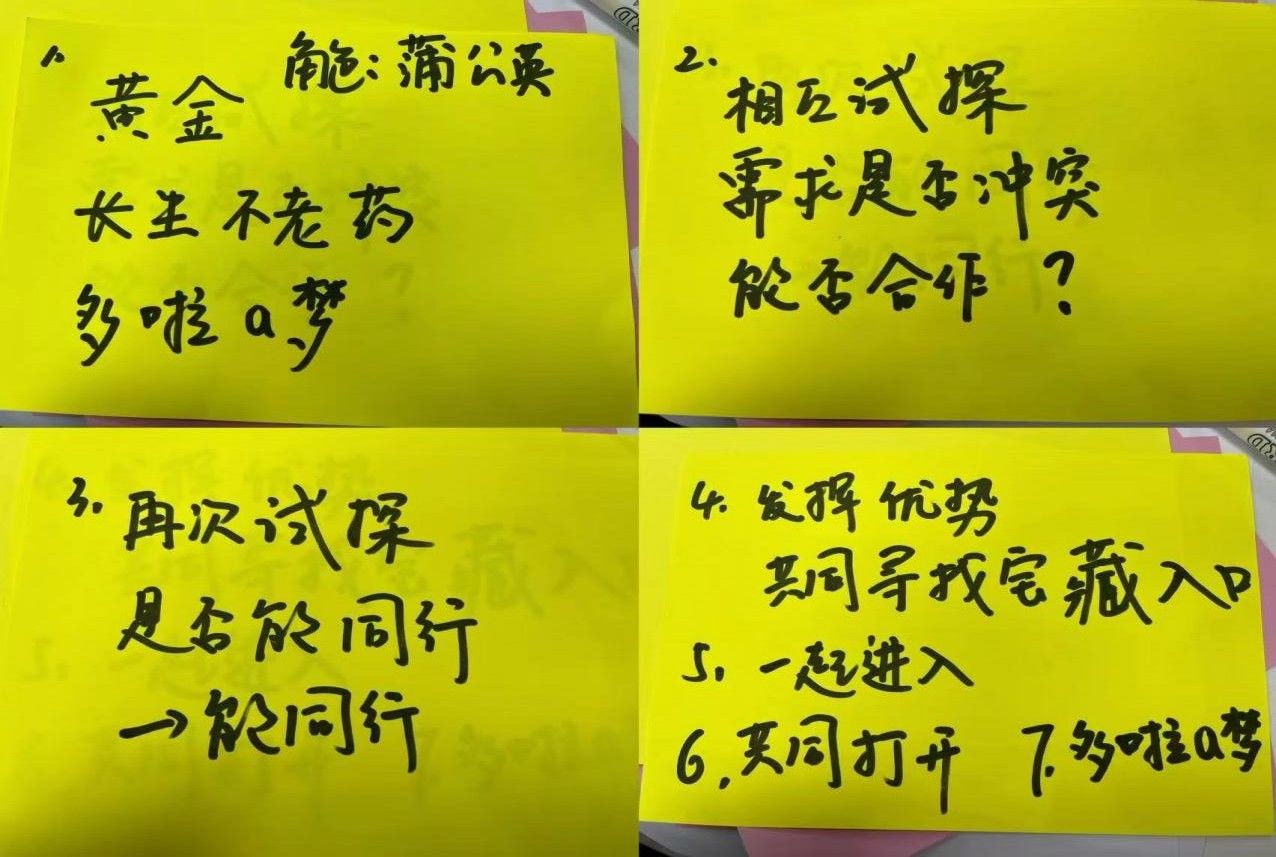 1. 角色：蒲公英
黄金
长生不老药
多啦a梦
2. 相互试探
需求是否冲突
能否合作？
3. 再次试探
是否能同行
→能同行
4. 发挥优势
共同寻找宝藏入口
5. 一起进入
6. 共同打开 7. 多啦a梦